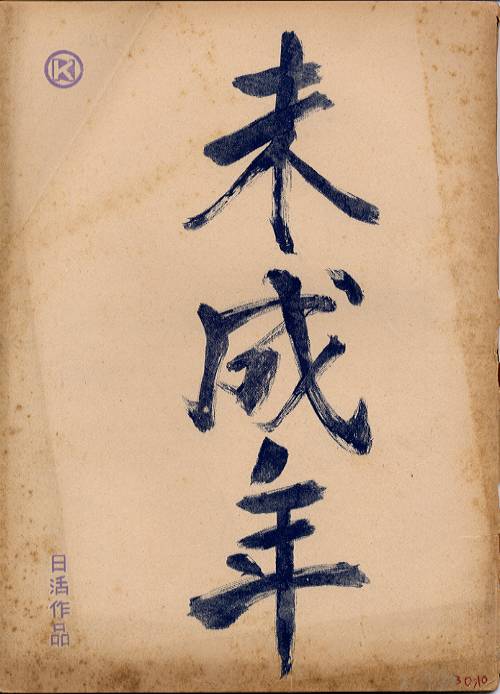 K
未成年
日活作品
30.10